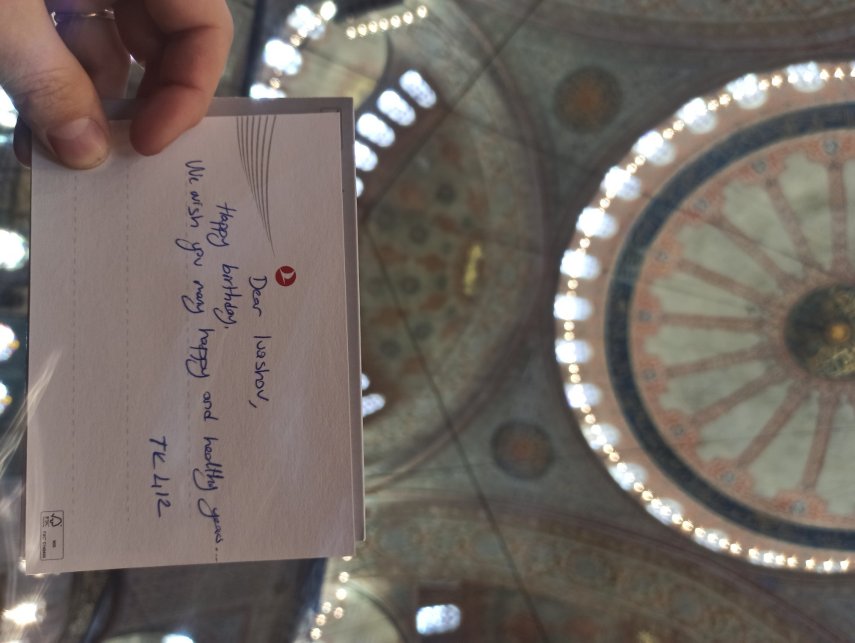 Dear Ivashov,
Happy birthday,
We wish you many happy and healthy years...
TK 412